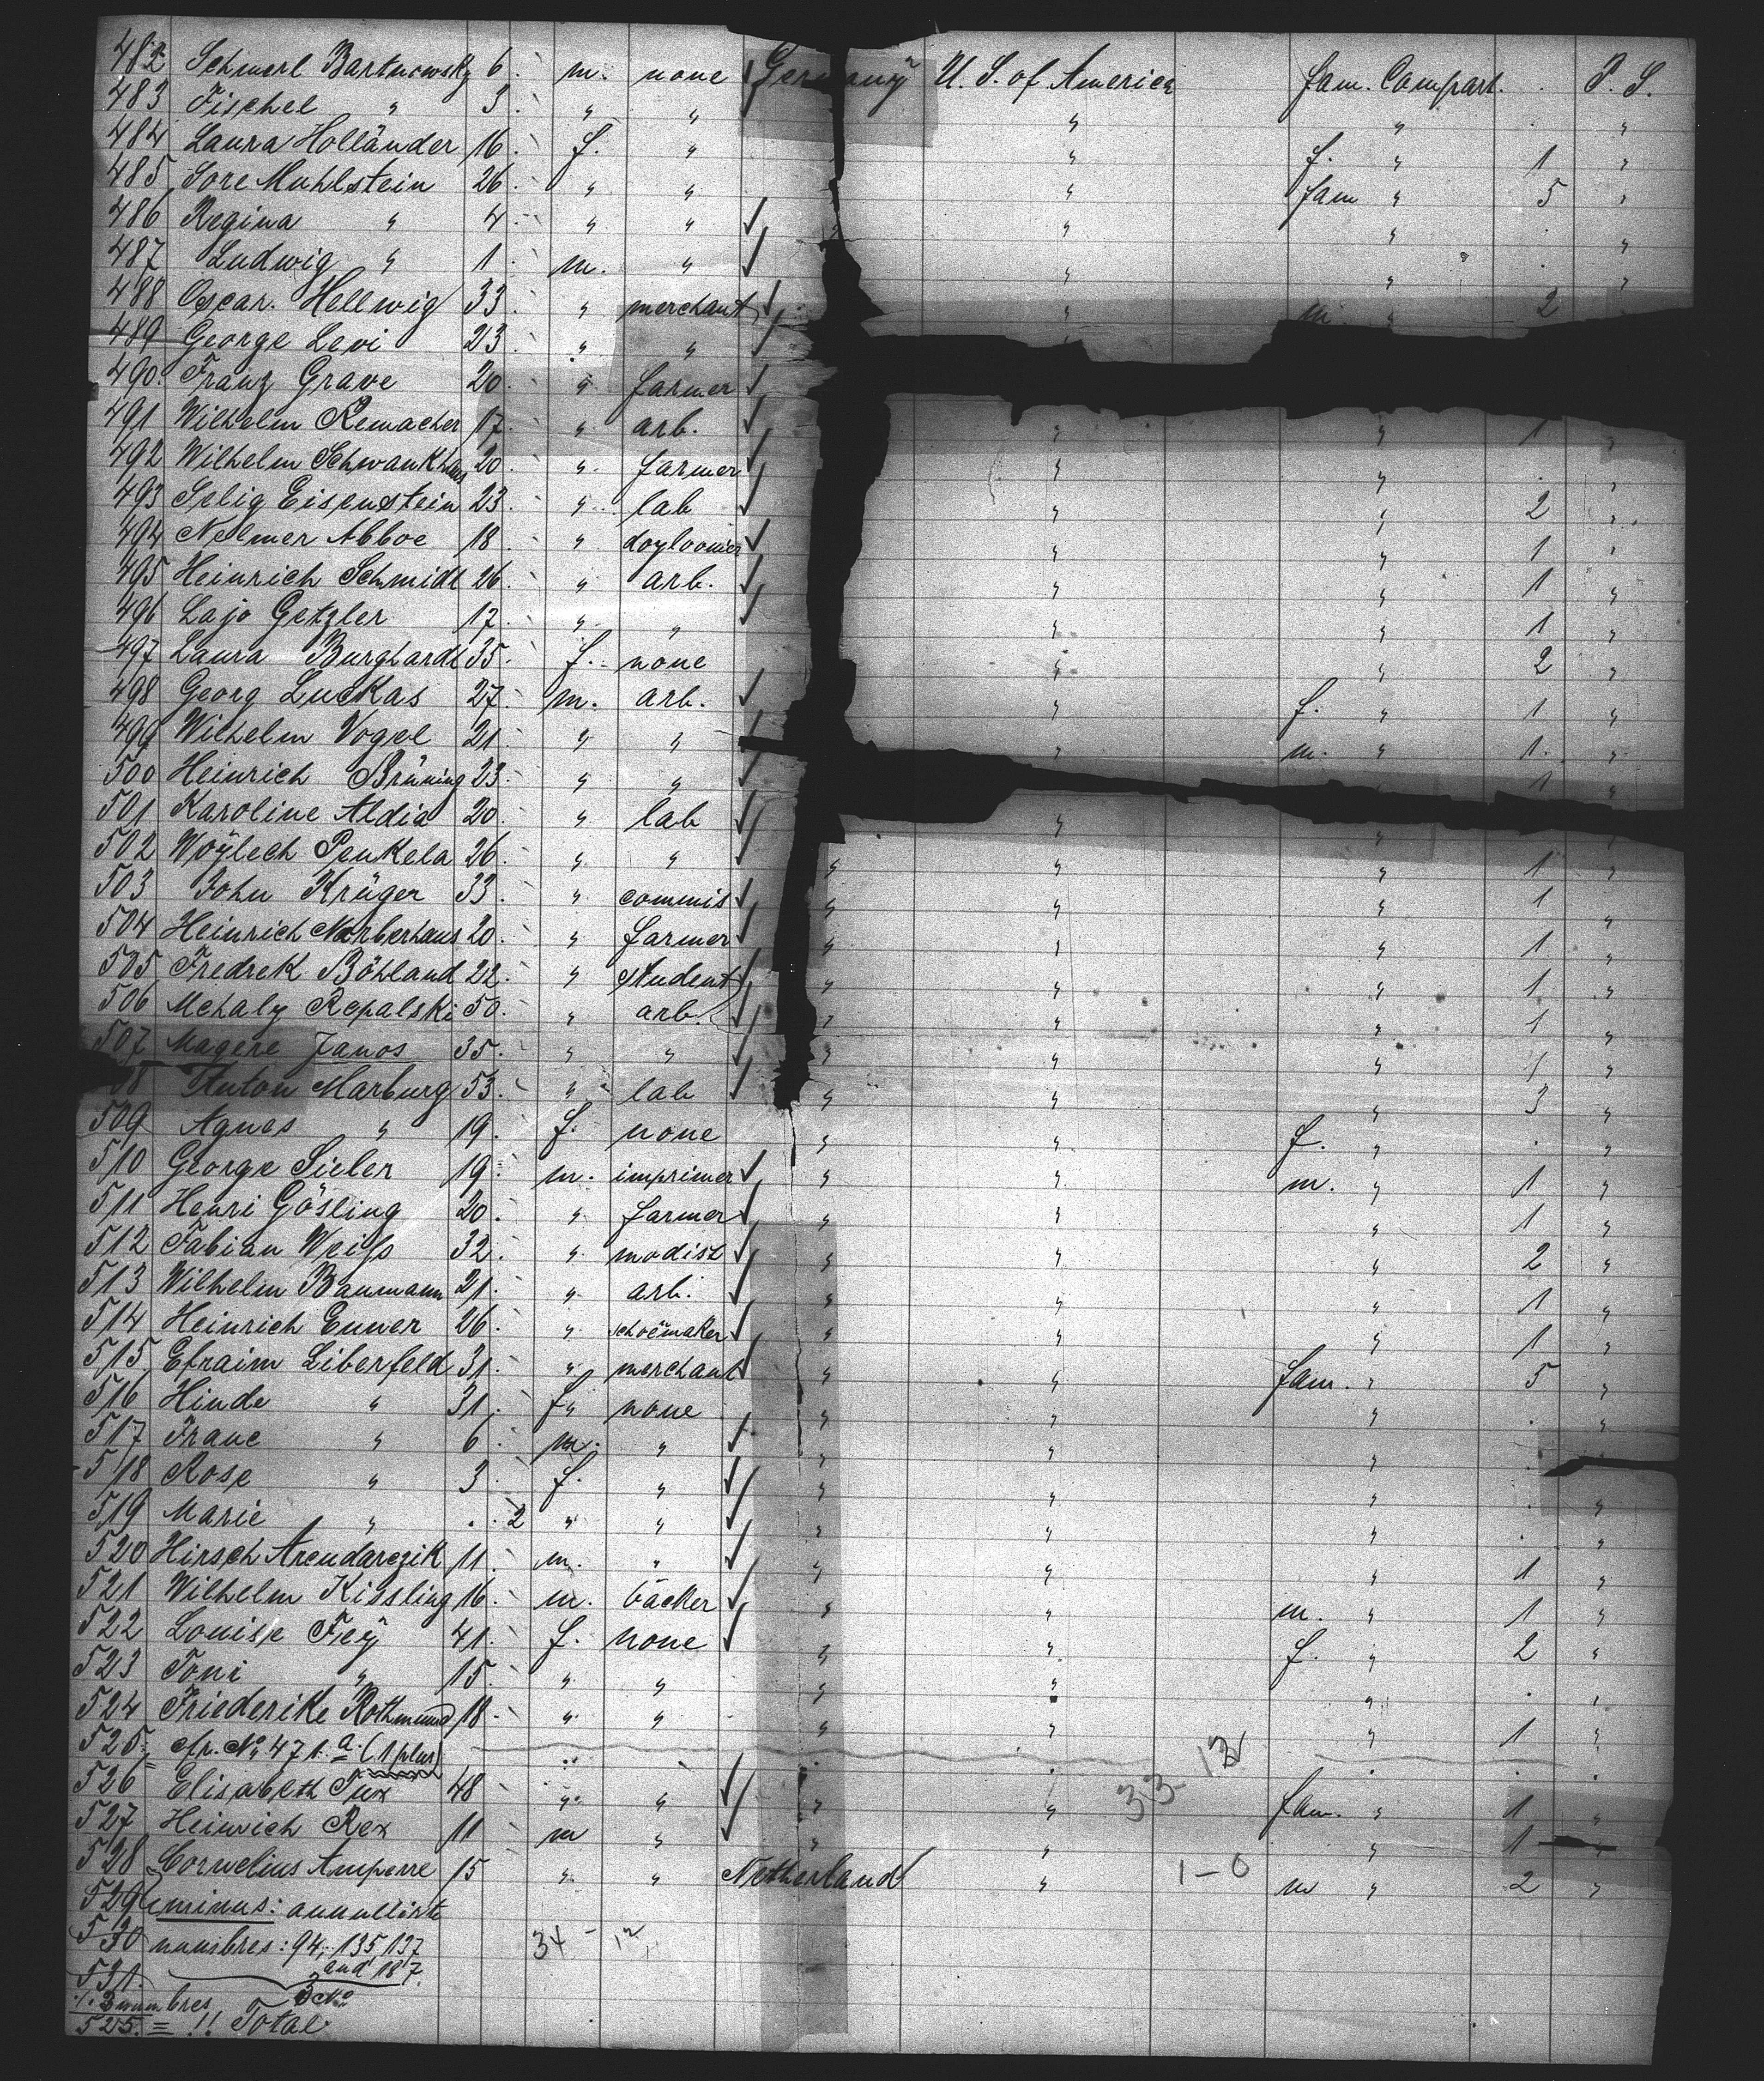 482 Schmerl Bartnowsky 6 m. none Germany U. S. of America fam. Compart. P. S.
483 Fischel " 3 " " " " "
484 Laura Holländer 16 f. " " f. " 1 "
485 Sore Muhlstein 26 " " " fam " 5 "
486 Regina " 4 " " " " "
487 Ludwig " 1 m. " " " "
488 Oscar. Hellwig 33 " merchant " m. " 2
489 George Levi 23 " "
490. Franz Grave 20 " farmer
491 Wilhelm Remacher 17 " arb. " " 1 "
492 Wilhelm Schwankhaus 20 " farmer " " "
493 Selig Eisenstein 23 " lab " " 2 "
494 Nelmer Abboe 18 " " " 1 "
495 Heinrich Schmidt 26 " arb. " " 1 "
496 Lajo Getzler 17 " " " " 1 "
497 Laura Burghardt 35 f. none " " 2 "
498 Georg Luckas 27 m. arb. " f. " 1 "
499 Wilhelm Vogel 21 " " " m. " 1 "
500 Heinrich Brüning 23 " " 1 "
501 Karoline Aldia 20 " lab " "
502 Woÿlech Penkela 26 " " " " " 1 "
503 John Krüger 33 " commis " " " 1 "
504 Heinrich Norberhaus 20 " farmer " " " 1 "
505 Fredrek Böhland 22 " student " " " 1 "
506 Mchaly Repalski 50 " arb. " " " 1 "
507 Magere Janos 35 " " " " " 1 "
08 Anton Marburg 53 " lab " " " 3 "
509 Agnes " 19 f. none " " f. " "
510 George Sieler 19 m. imprimer " " m. " 1 "
511 Henri Gösling 20 " farmer " " " 1 "
512 Fabian Weiss 32 " modist " " " 2 "
513 Wilhelm Baumann 21 " arb. " " " 1 "
514 Heinrich Enner 26 " schoemaker " " " 1 "
515 Efraim Liberfeld 31 " merchant " " fam. " 5 "
516 Hinde " 31 f. none " " " "
517 Franc " 6 m. " " " " "
518 Rose " 3 f. " " " " "
519 Marie " 2 " " " " " "
520 Hirsch Arendarczik 11 m. " " " " 1 "
521 Wilhelm Kissling 16 m. bäcker " " m. " 1 "
522 Louise Feÿ 41 f. none " " f. " 2 "
523 Toni " 15 " " " " " "
524 Friederike Rothmund 18 " " " " " 1 "
525 cfr. No 471. a. (1 plus)
526 Elisabeth Tux 48 " " " " 33 - 12 fam. " 1 "
527 Heinrich Rex 11 m " " " " 1 "
528 Cornelius Amperre 15 " " Netherland " 1 - 0 m " 2 "
529 minus: annullirte
530 numbres: 94, 135 137 34 - 12
and 187.
531. 3 No
./. 3 numbres
525. = !! Total.